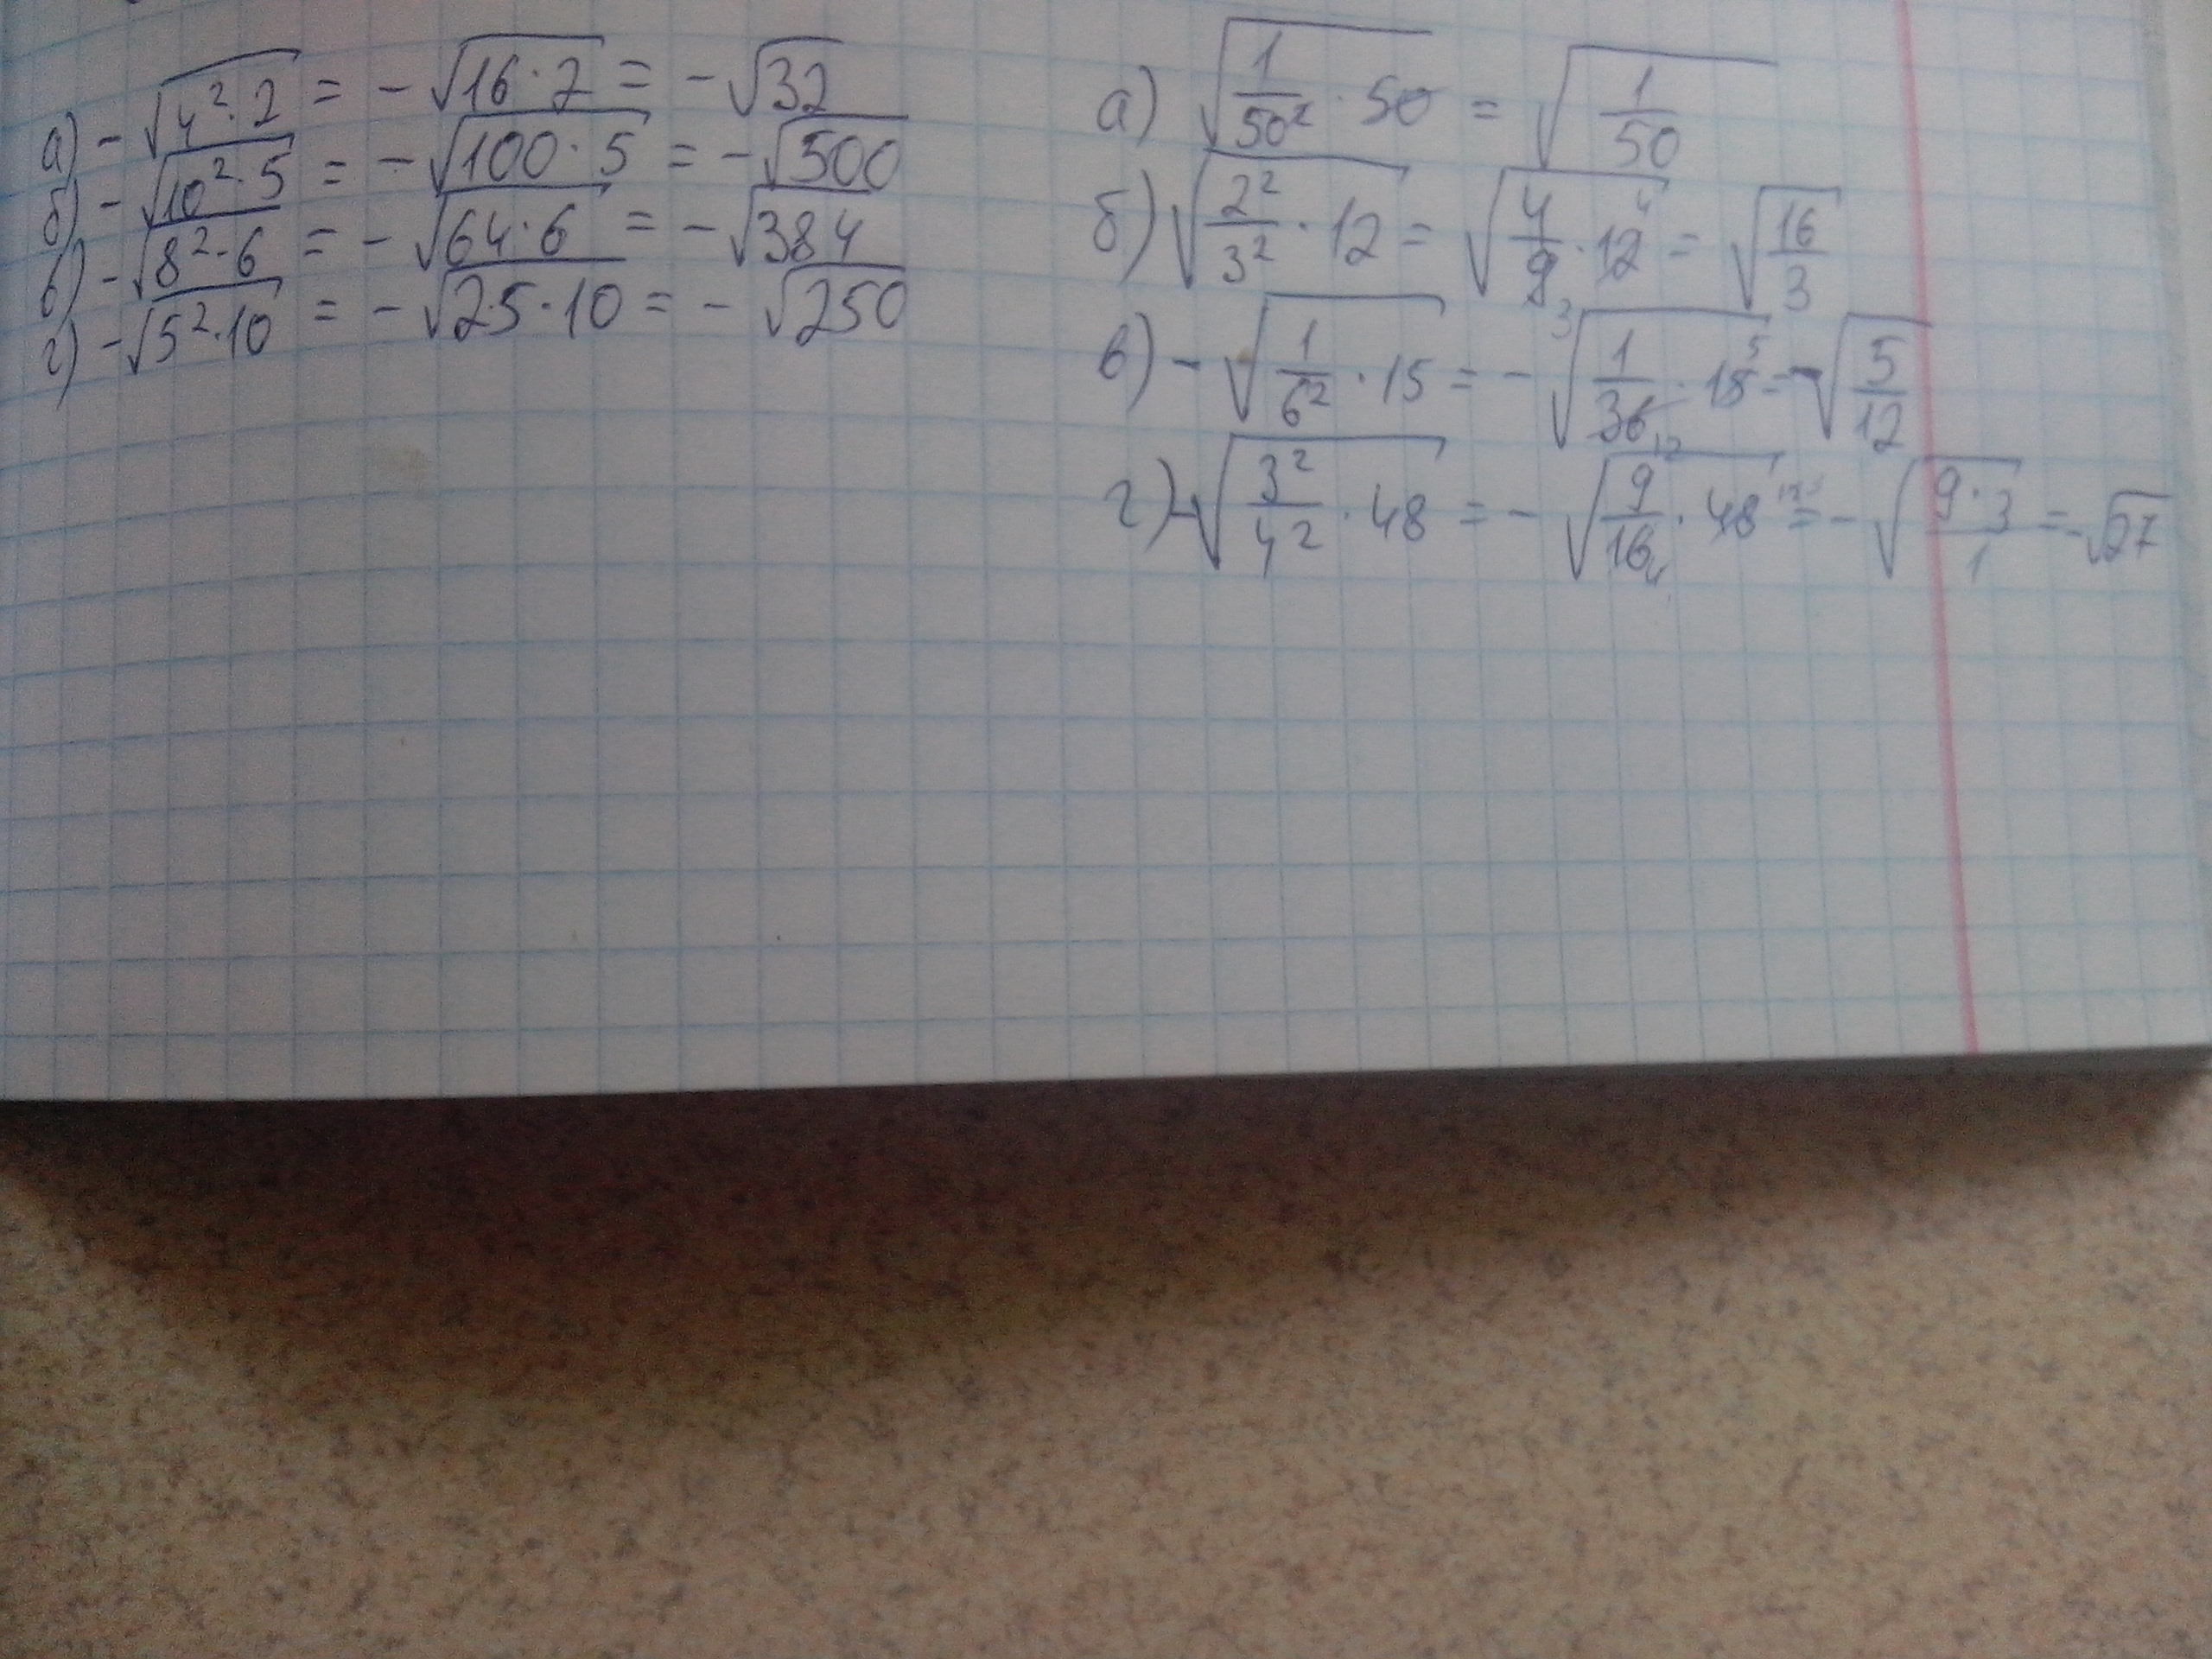 а) -√(4²·2) = -√(16·2) = -√32
б) -√(10²·5) = -√(100·5) = -√500
в) -√(8²·6) = -√(64·6) = -√384
г) -√(5²·10) = -√(25·10) = -√250
а) √(1/50² · 50) = √(1/50)
б) √(2²/3² · 12) = √(4/9 3 · 12 4) = √(16/3)
в) -√(1/6² · 15) = -√(1/36 12 · 15 5) = -√(5/12)
г) -√(3²/4² · 48) = -√(9/16 4 · 48 12) = -√(9·3/1) = -√27